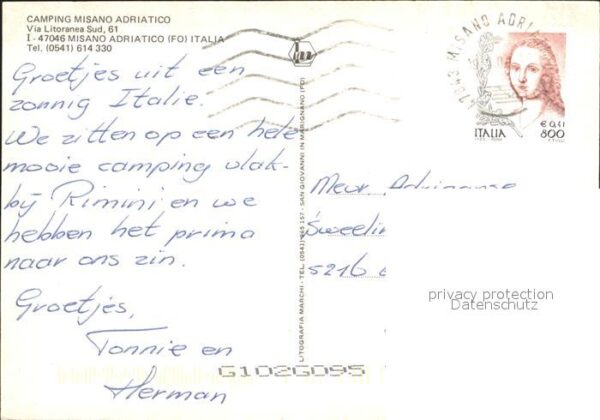 CAMPING MISANO ADRIATICO
Via Litoranea Sud, 61
I - 47046 MISANO ADRIATICO (FO) ITALIA
Tel. (0541) 614 330
Groetjes uit een
zonnig Italie.
We zitten op een hele
mooie camping vlak-
bij Rimini en we
hebben het prima
naar ons zin.
Groetjes,
Tonnie en
Herman
LITOGRAFIA MARCHI - TEL. (0541) 945 157 - SAN GIOVANNI IN MARIGNANO (FO)
MISANO ADRIA
ITALIA
€ 0,41
800
Mevr.
Sweelin
5216
privacy protection
Datenschutz
G102G095